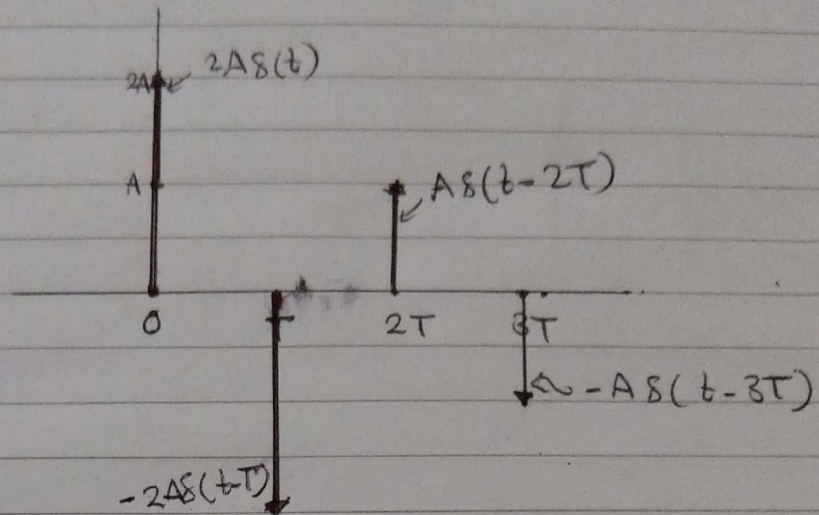 2A
2Aδ(t)
A
Aδ(t-2T)
0
T
2T
3T
-Aδ(t-3T)
-2Aδ(t-T)